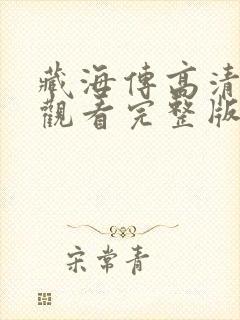 藏海傳高清
觀看完整版
宋常青